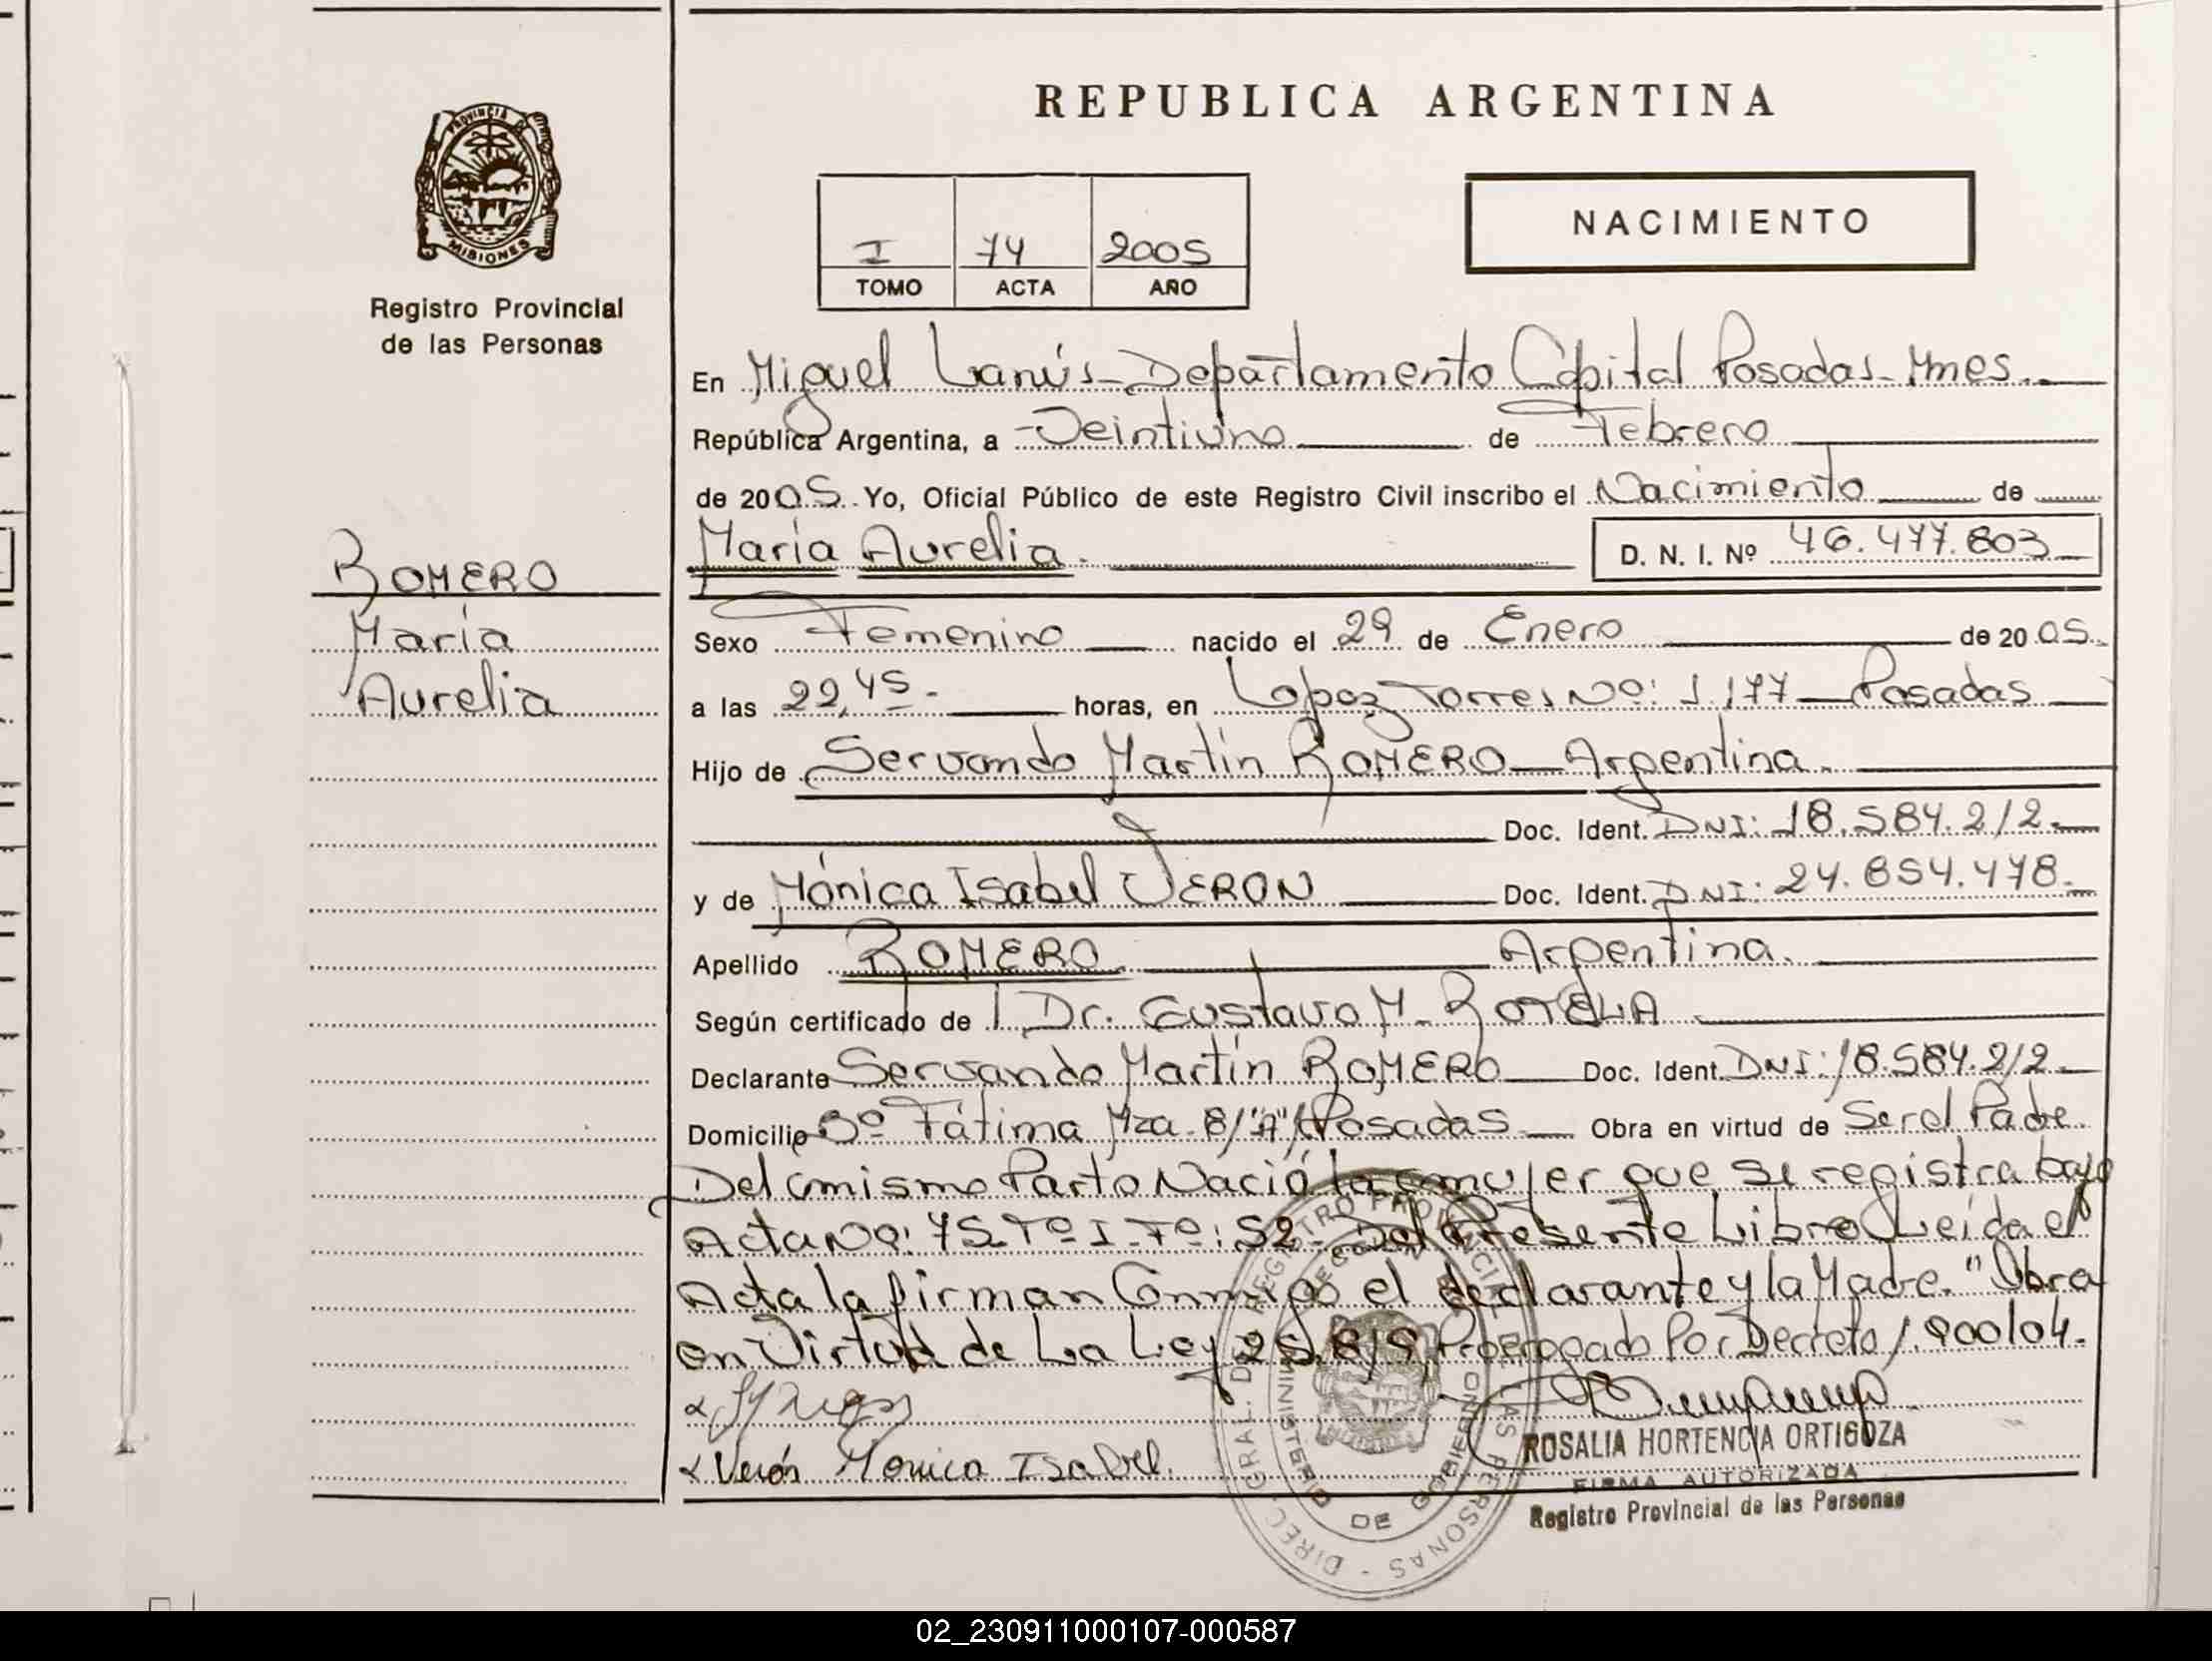 REPUBLICA ARGENTINA
PROVINCIA DE
MISIONES
Registro Provincial
de las Personas
NACIMIENTO
I 74 2005
TOMO ACTA AÑO
En Miguel Lanús - Departamento Capital Posadas - Mnes.
República Argentina, a Veintiuno de Febrero
de 2005. Yo, Oficial Público de este Registro Civil inscribo el Nacimiento de
María Aurelia. D. N. I. Nº 46.477.803
ROMERO
María
Aurelia
Sexo Femenino nacido el 29 de Enero de 2005.
a las 22,45 - horas, en Lopez Torres Nº: 1.177 - Posadas
Hijo de Servando Martín ROMERO - Argentina.
Doc. Ident. DNI: 18.584.212.
y de Mónica Isabel VERON Doc. Ident. DNI: 24.854.478.
Apellido ROMERO Argentina.
Según certificado de Dr. Gustavo M.
Declarante Servando Martín ROMERO Doc. Ident. DNI: 18.584.212.
Domicilio Bº Fátima Mza. 8/"A"/Posadas Obra en virtud de Ser el Padre.
Del mismo Parto Nació la mujer que se registra bajo
Acta Nº: 75 Tº I - Fº: 52 - Del Presente Libro Leída el
Acta la firman Conmigo el declarante y la Madre. "Obra
en Virtud de La Ley 25.819 Prorrogado Por Decreto 1.900/04.
Verón Monica Isabel.
ROSALIA HORTENCIA ORTIGOZA
FIRMA AUTORIZADA
Registro Provincial de las Personas
DIREC. GRAL. DEL REGISTRO PROVINCIAL DE LAS PERSONAS
MINISTERIO DE GOBIERNO
02_230911000107-000587